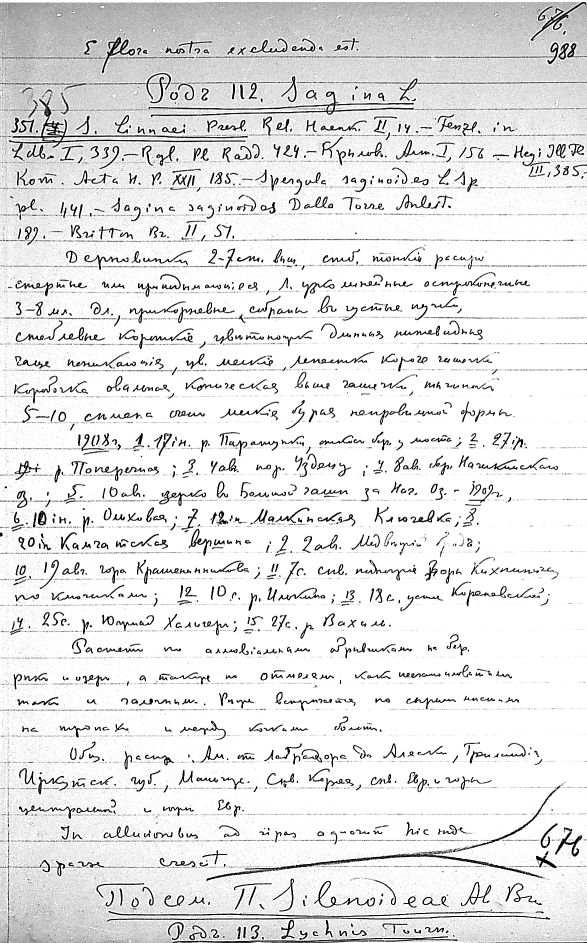 676.
988
E flora nostra excludenda est.
Родъ 112. Sagina L.
385
351. S. Linnaei Presl. Rel. Haenk. II, 14. — Fenzl. in
Ldb. I, 339. — Rgl. Pl. Radd. 424. — Крылов. Алт. I, 156 — Hegi Ill. Fl.
III, 385.
Kom. Acta H. P. XXII, 185. — Spergula saginoides L. Sp
pl. 441. — Sagina saginoides Dalla Torre Anleit.
189. — Britton Br. II, 51.
Дерновинки 2-7 cm. выш., стеб. тонкие распро
стертые или приподымающіеся, л. узко линейные остроконечные
3-8 мл. дл., прикорневые, собраны въ густые пучки,
стеблевые короткіе, цвѣтоножки длинныя нитевидныя
чаще поникающія, цв. мелкіе, лепестки короче чашечки,
коробочка овальная, коническая выше чашечки, тычинки
5-10, сѣмена очень мелкія бурыя неправильной формы.
1908 г, 1. 17 in. р. Паратунка, бер. у моста; 2. 27 ip.
р. Поперечная; 3. 4 ав. пер. Уздецу; 4. 8 ав. бер. Начикинскаго
оз.; 5. 10 ав. озерко во Большой чаши за Нач. Оз. - 1909 г,
6. 10 in. р. Ольховая; 7. 12 in Малкинская Ключевка; 8.
20 in Камчатская вершина; 9. 2 ав. Медвѣжій
10. 19 авг. гора Крашенинникова; 11. 7 с. сѣв. подножіе горы Кихпиныча
по ключикамъ; 12. 10 с. р.; 13. 18 с. устье Кореневской;
14. 25 с. р. Юртная; 15. 27 с. р. Вахиль.
Растетъ по аллювіальнымъ обрывчикамъ на бер.
рѣкъ и озеръ, а также по отмелямъ, какъ песчаноиловатымъ
такъ и галечнымъ. Рѣже встрѣчается по сырымъ мѣстамъ
на тропахъ и между кочками болотъ.
Общ. распр.: Ам. отъ Лабрадора до Аляски, Гренландія,
Иркутск. губ., Маньчж., Сѣв. Корея, сѣв. Евр. и горы
центральной и южн. Евр.
In alluvionibus ad ripas aquarum hic inde
sparse crescit.
676
Подсем. II. Silenoideae Al. Br.
Родъ 113. Lychnis Tourn.